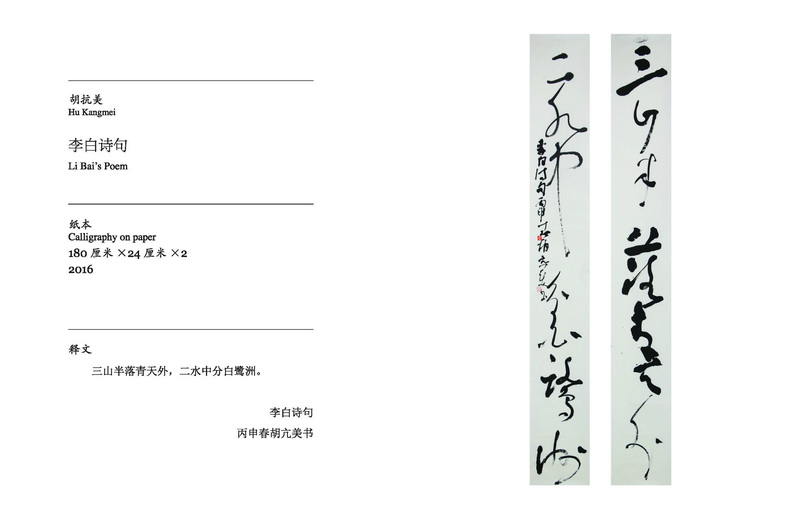 胡抗美
Hu Kangmei
李白诗句
Li Bai's Poem
纸本
Calligraphy on paper
180 厘米 ×24 厘米 ×2
2016
释文
三山半落青天外，二水中分白鹭洲。
李白诗句
丙申春胡亢美书
三山半落青天外
二水中分白鹭洲
李白诗句丙申